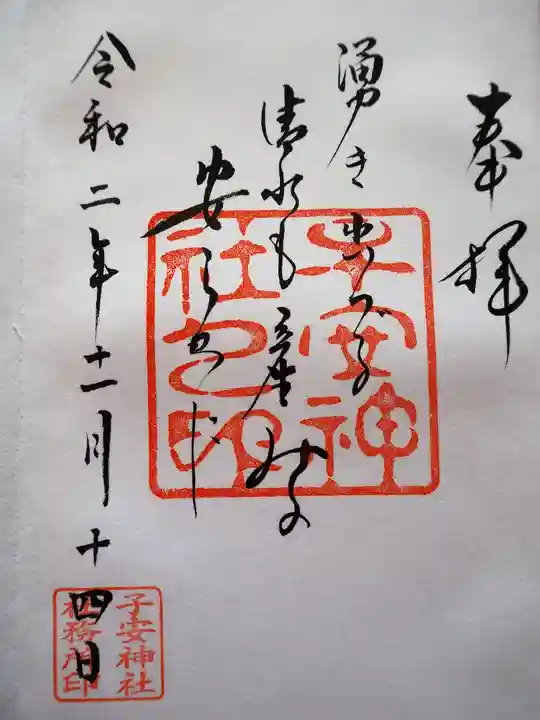 奉拝
湧き出づる
清水も産
安らけ
令和二年十一月十四日
子安神社之印
子安神社
社務所印